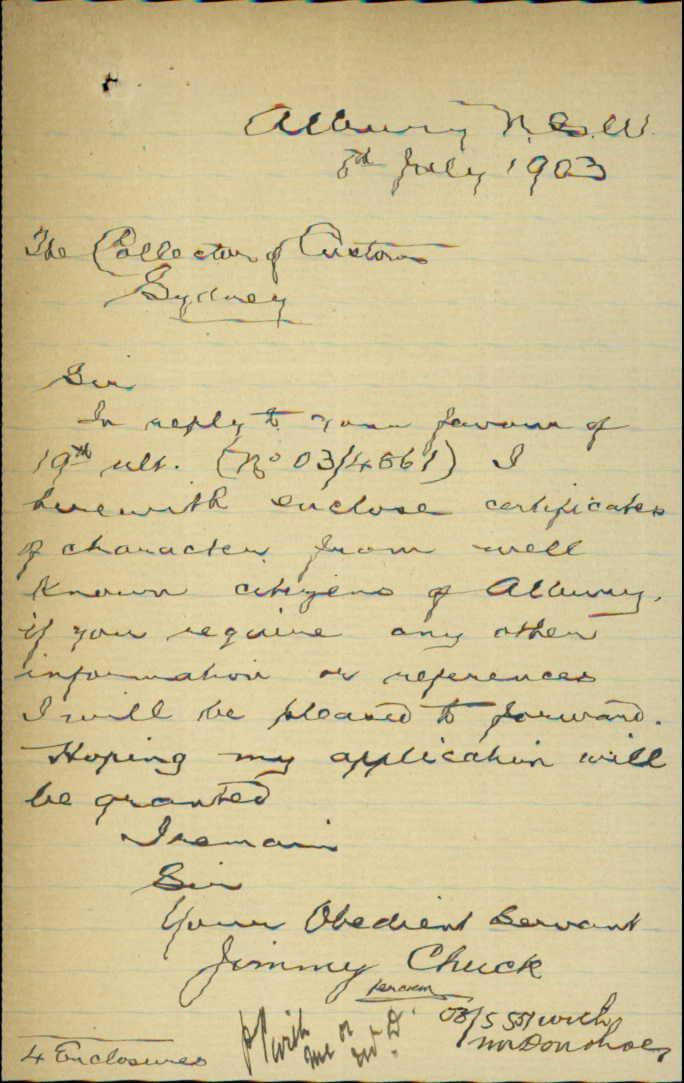 Albury N.S.W.
8th July 1903
The Collector of Customs
Sydney
Sir
In reply to your favour of
19th ult. (No 03/4861) I
herewith enclose certificates
of character from well
known citizens of Albury,
if you require any other
information or references
I will be pleased to forward.
Hoping my application will
be granted
I remain
Sir
Your Obedient Servant
Jimmy Chuck
03/5 with
Mr Donohoe
pp with
me or
4 Enclosures